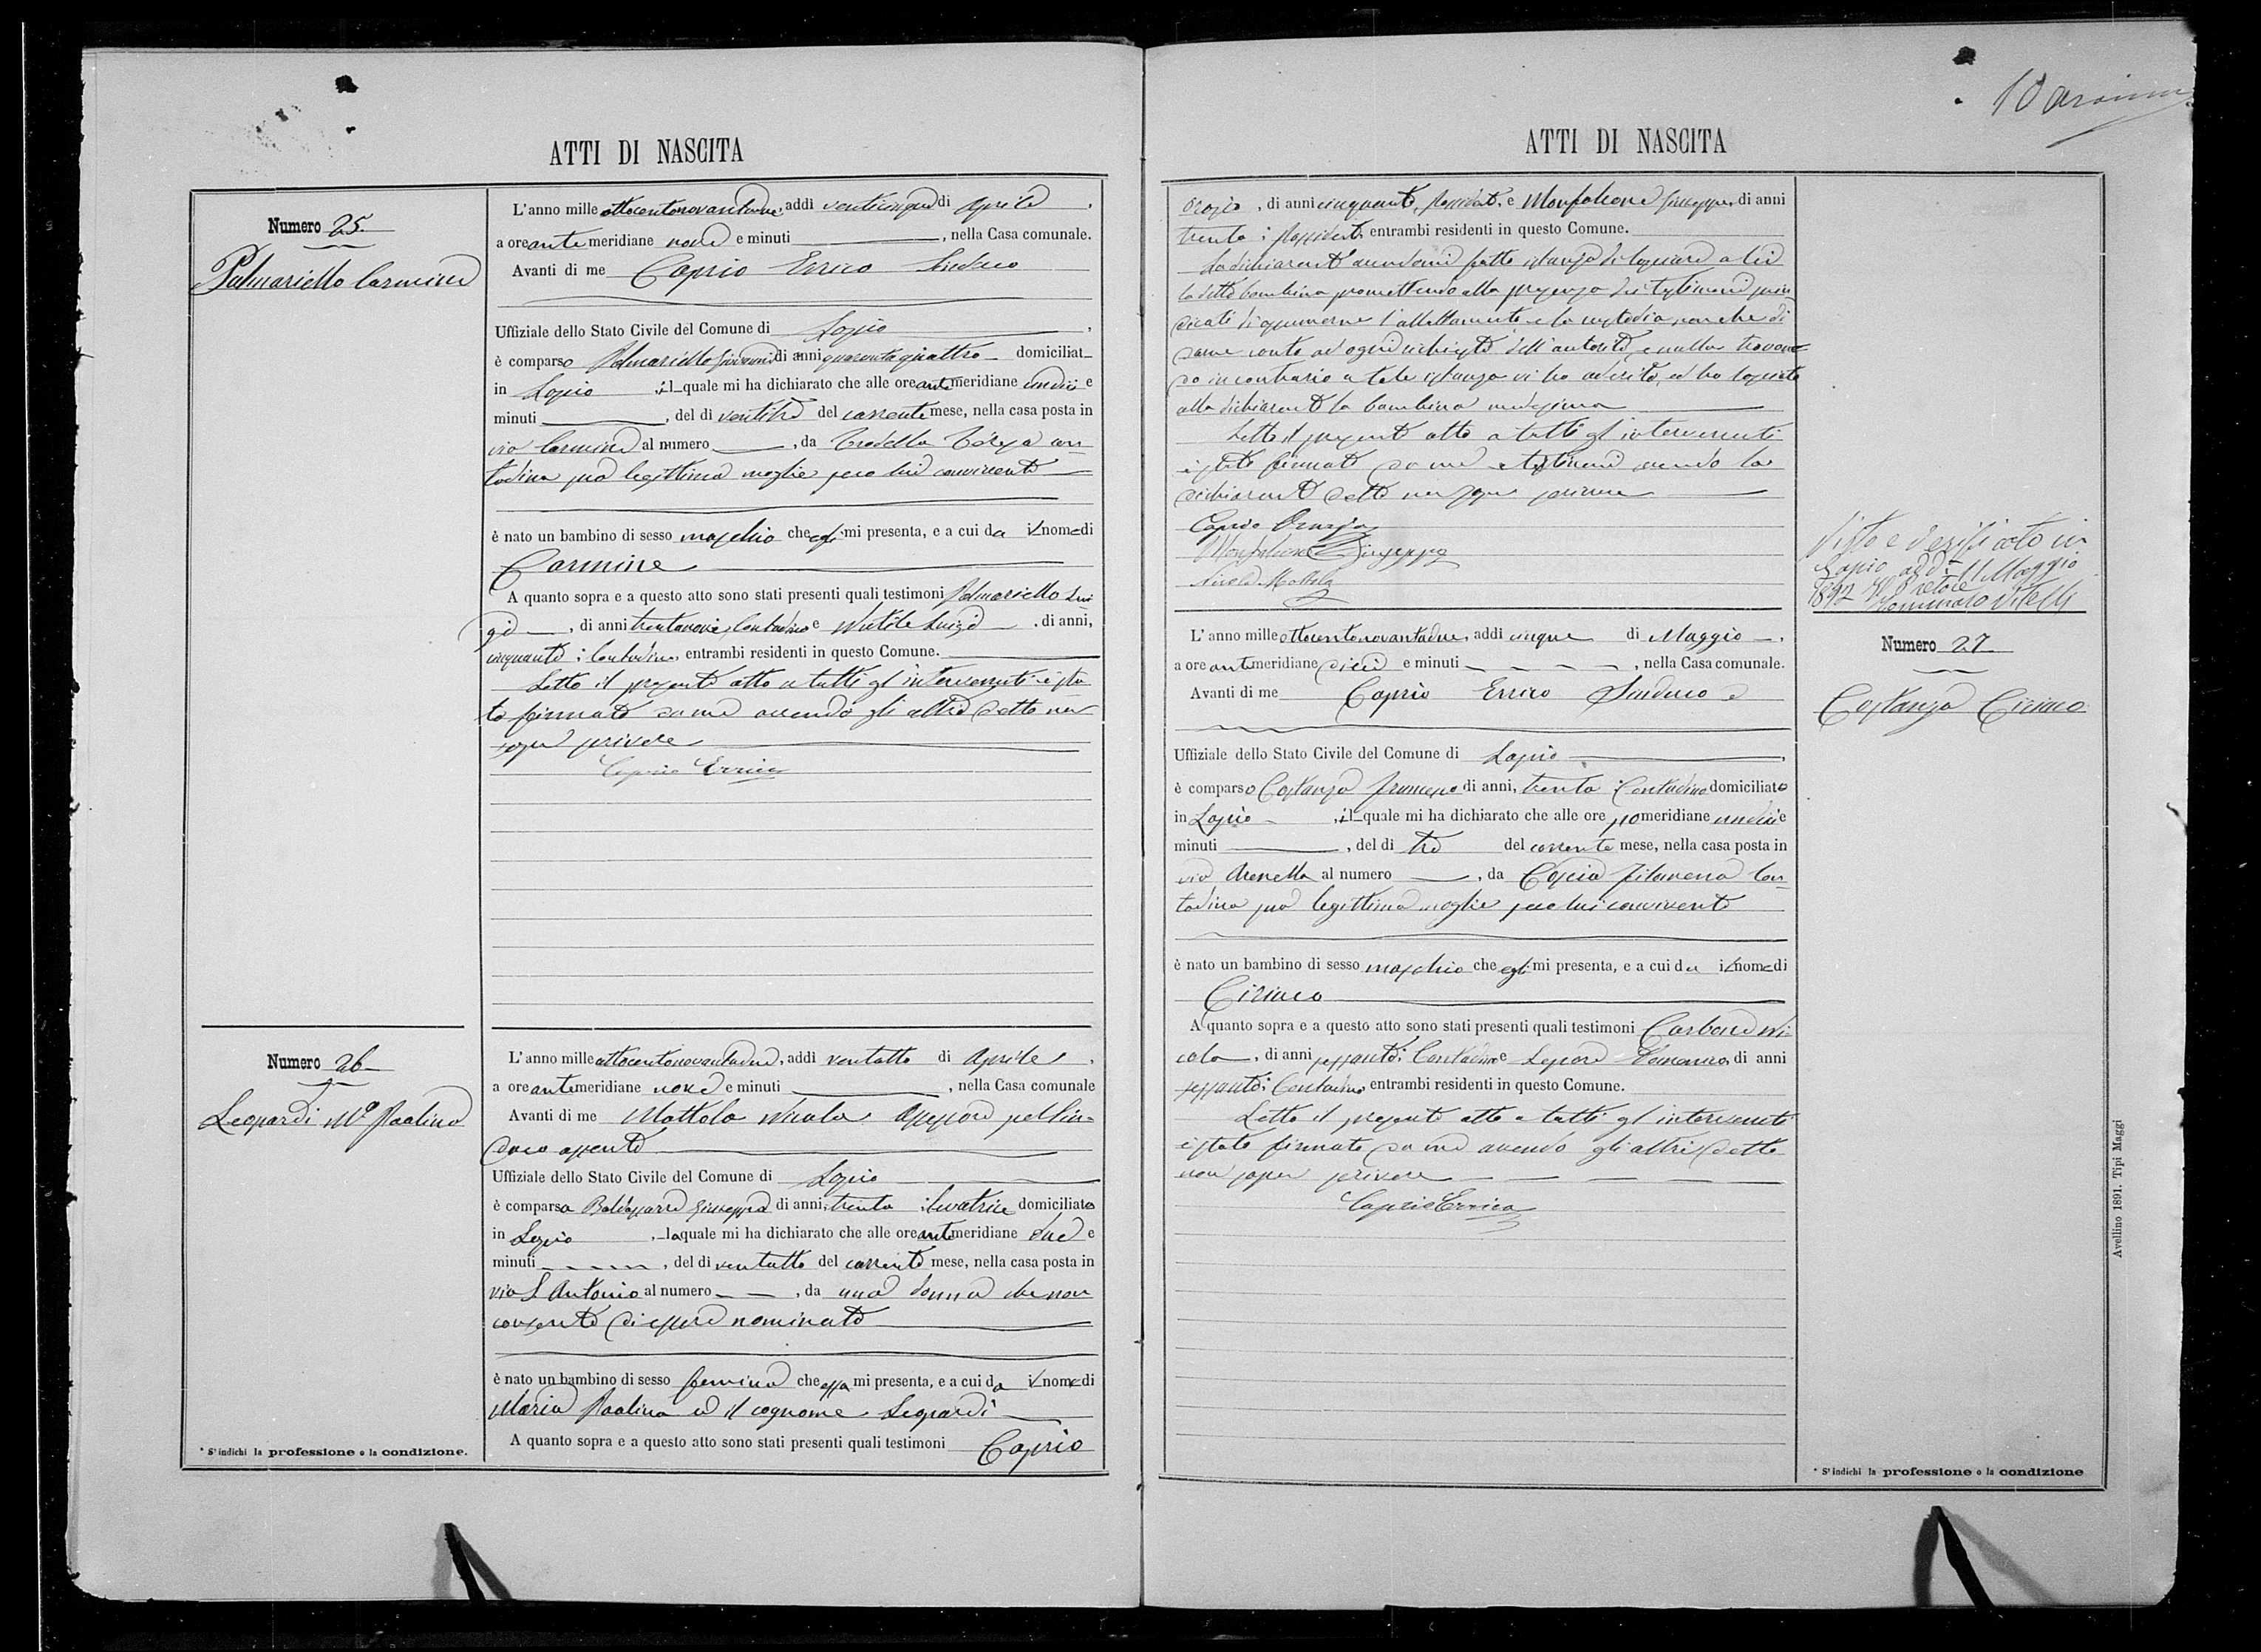 ATTI DI NASCITA
Numero 25.
Palmariello Carmine
L'anno mille ottocentonovantadue, addì venticinque di Aprile,
a ore antemeridiane nove e minuti, nella Casa comunale.
Avanti di me Caprio Errico Sindaco
Uffiziale dello Stato Civile del Comune di Lapio,
è comparso Palmariello Giovanni di anni quarantaquattro domiciliat
in Lapio, il quale mi ha dichiarato che alle ore antemeridiane undici e
minuti, del dì ventitre del corrente mese, nella casa posta in
via Carmine al numero, da Trodella Teresa con-
tadina sua legittima moglie seco lui convivente
è nato un bambino di sesso maschio che egli mi presenta, e a cui da il nome di
Carmine
A quanto sopra e a questo atto sono stati presenti quali testimoni Palmariello Lui
gi, di anni trentanove, Contadino e Mutile Luigi, di anni,
cinquanta; Contadino, entrambi residenti in questo Comune.
Letto il presente atto a tutti gl'intervenuti è sta
to firmato da me avendo gli altri detto non
saper scrivere
Caprio Errico
Numero 26
Leopardi Ma Paolina
L'anno mille ottocentonovantadue, addì ventotto di Aprile,
a ore antemeridiane nove e minuti, nella Casa comunale
Avanti di me Mottola Nicola Assessore pel Sin-
daco assente
Uffiziale dello Stato Civile del Comune di Lapio
è comparsa Baldassarre Giuseppa di anni, trenta; levatrice domiciliata
in Lapio, la quale mi ha dichiarato che alle ore antemeridiane due e
minuti, del dì ventotto del corrente mese, nella casa posta in
via S. Antonio al numero, da una donna che non
consente di essere nominata
è nato un bambino di sesso femina che essa mi presenta, e a cui da il nome di
Maria Paolina ed il cognome Leopardi
A quanto sopra e a questo atto sono stati presenti quali testimoni Caprio
* S'indichi la professione o la condizione.
ATTI DI NASCITA
Orazio, di anni cinquanta, Possidente, e Monfalcone Giuseppe, di anni
trenta; Possidente, entrambi residenti in questo Comune.
La dichiarante avendomi fatto istanza di lasciare a lei
la detta bambina promettendo alla presenza dei testimoni prein
dicati di assumerne l'allattamento e la custodia non che di
darne conto ad ogni richiesta dell'autorità, e nulla trovan
do in contrario a tale istanza vi ho aderito, ed ho lasciato
alla dichiarante la bambina medesima
Letto il presente atto a tutti gl'intervenuti
è stato firmato da me e testimoni avendo la
dichiarante detto non saper scrivere
Caprio Orazio
Monfalcone Giuseppe
Nicola Mottola
Visto e verificato in
Lapio addì 11 Maggio
1892 Il Pretore
Vitelli
L'anno mille ottocentonovantadue, addì cinque di Maggio,
a ore antemeridiane dieci e minuti, nella Casa comunale.
Avanti di me Caprio Errico Sindaco e
Uffiziale dello Stato Civile del Comune di Lapio,
è comparso Costanza Francesco di anni, trenta; Contadino domiciliato
in Lapio, il quale mi ha dichiarato che alle ore pomeridiane undici e
minuti, del dì tre del corrente mese, nella casa posta in
via Arenella al numero, da Coscia Filomena Con-
tadina sua legittima moglie seco lui convivente
è nato un bambino di sesso maschio che egli mi presenta, e a cui da il nome di
Ciriaco
A quanto sopra e a questo atto sono stati presenti quali testimoni Carbone Ni-
cola, di anni sessanta; Contadino e Lepore Domenico, di anni
sessanta; Contadino, entrambi residenti in questo Comune.
Letto il presente atto a tutti gl'intervenuti
è stato firmato da me avendo gli altri detto
non saper scrivere
Caprio Errico
Numero 27
Costanza Ciriaco
* S'indichi la professione o la condizione
Avellino 1891. Tipi Maggi